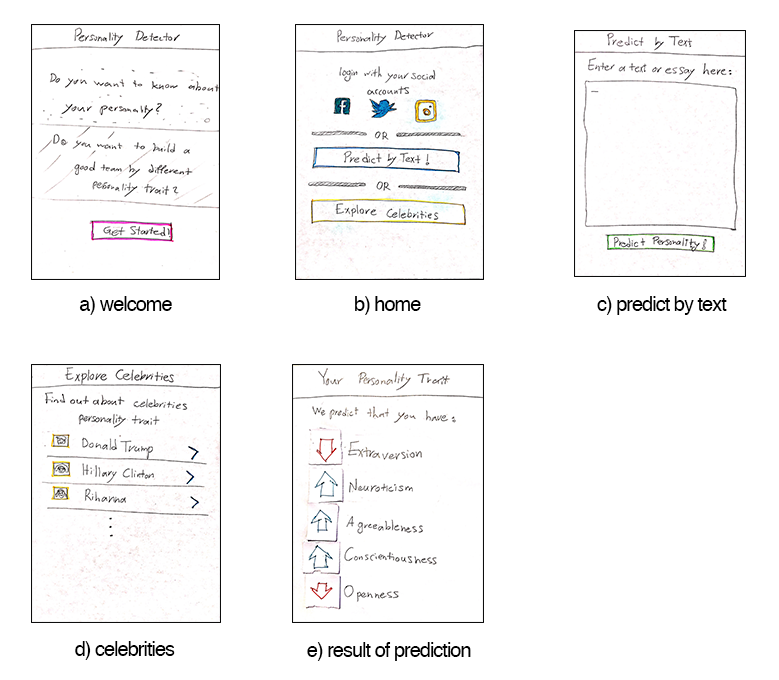 Personality Detector
Do you want to know about
your personality?
Do you want to build a
good team by different
personality trait?
Get Started!
a) welcome
Personality Detector
login with your social
accounts
f
OR
Predict by Text!
OR
Explore Celebrities
b) home
Predict by Text
Enter a text or essay here:
Predict Personality!
c) predict by text
Explore Celebrities
Find out about celebrities
personality trait
Donald Trump
Hillary Clinton
Rihanna
d) celebrities
Your Personality Trait
We predict that you have:
Extraversion
Neuroticism
Agreeableness
Conscientiousness
Openness
e) result of prediction